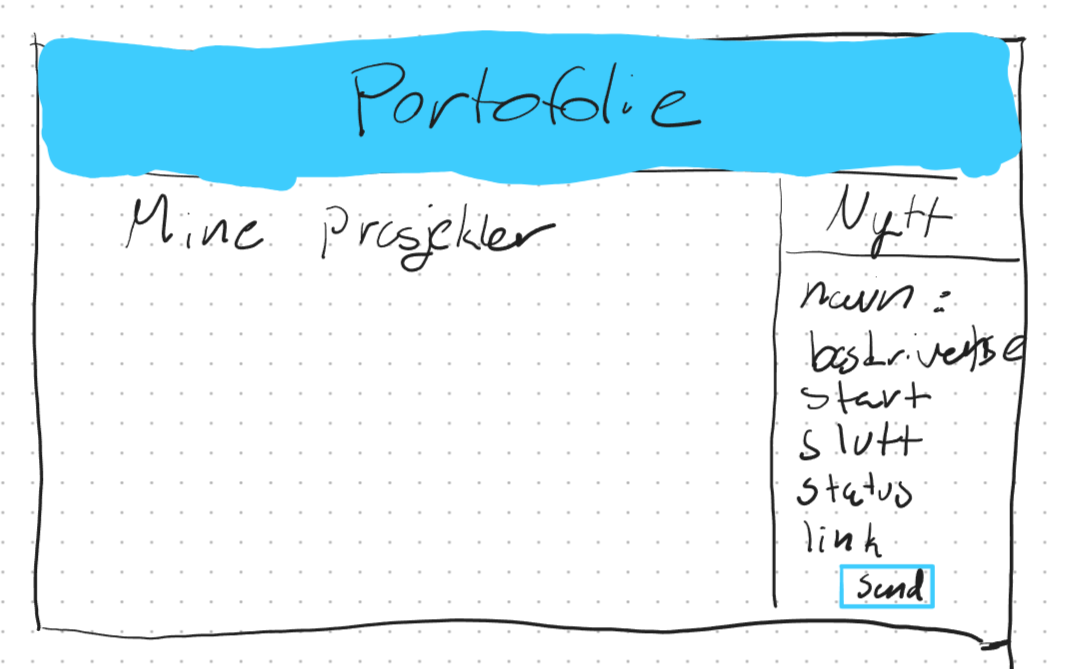 Portofolie
Mine prosjekter
Nytt
navn :
beskrivelse
start
slutt
status
link
Send